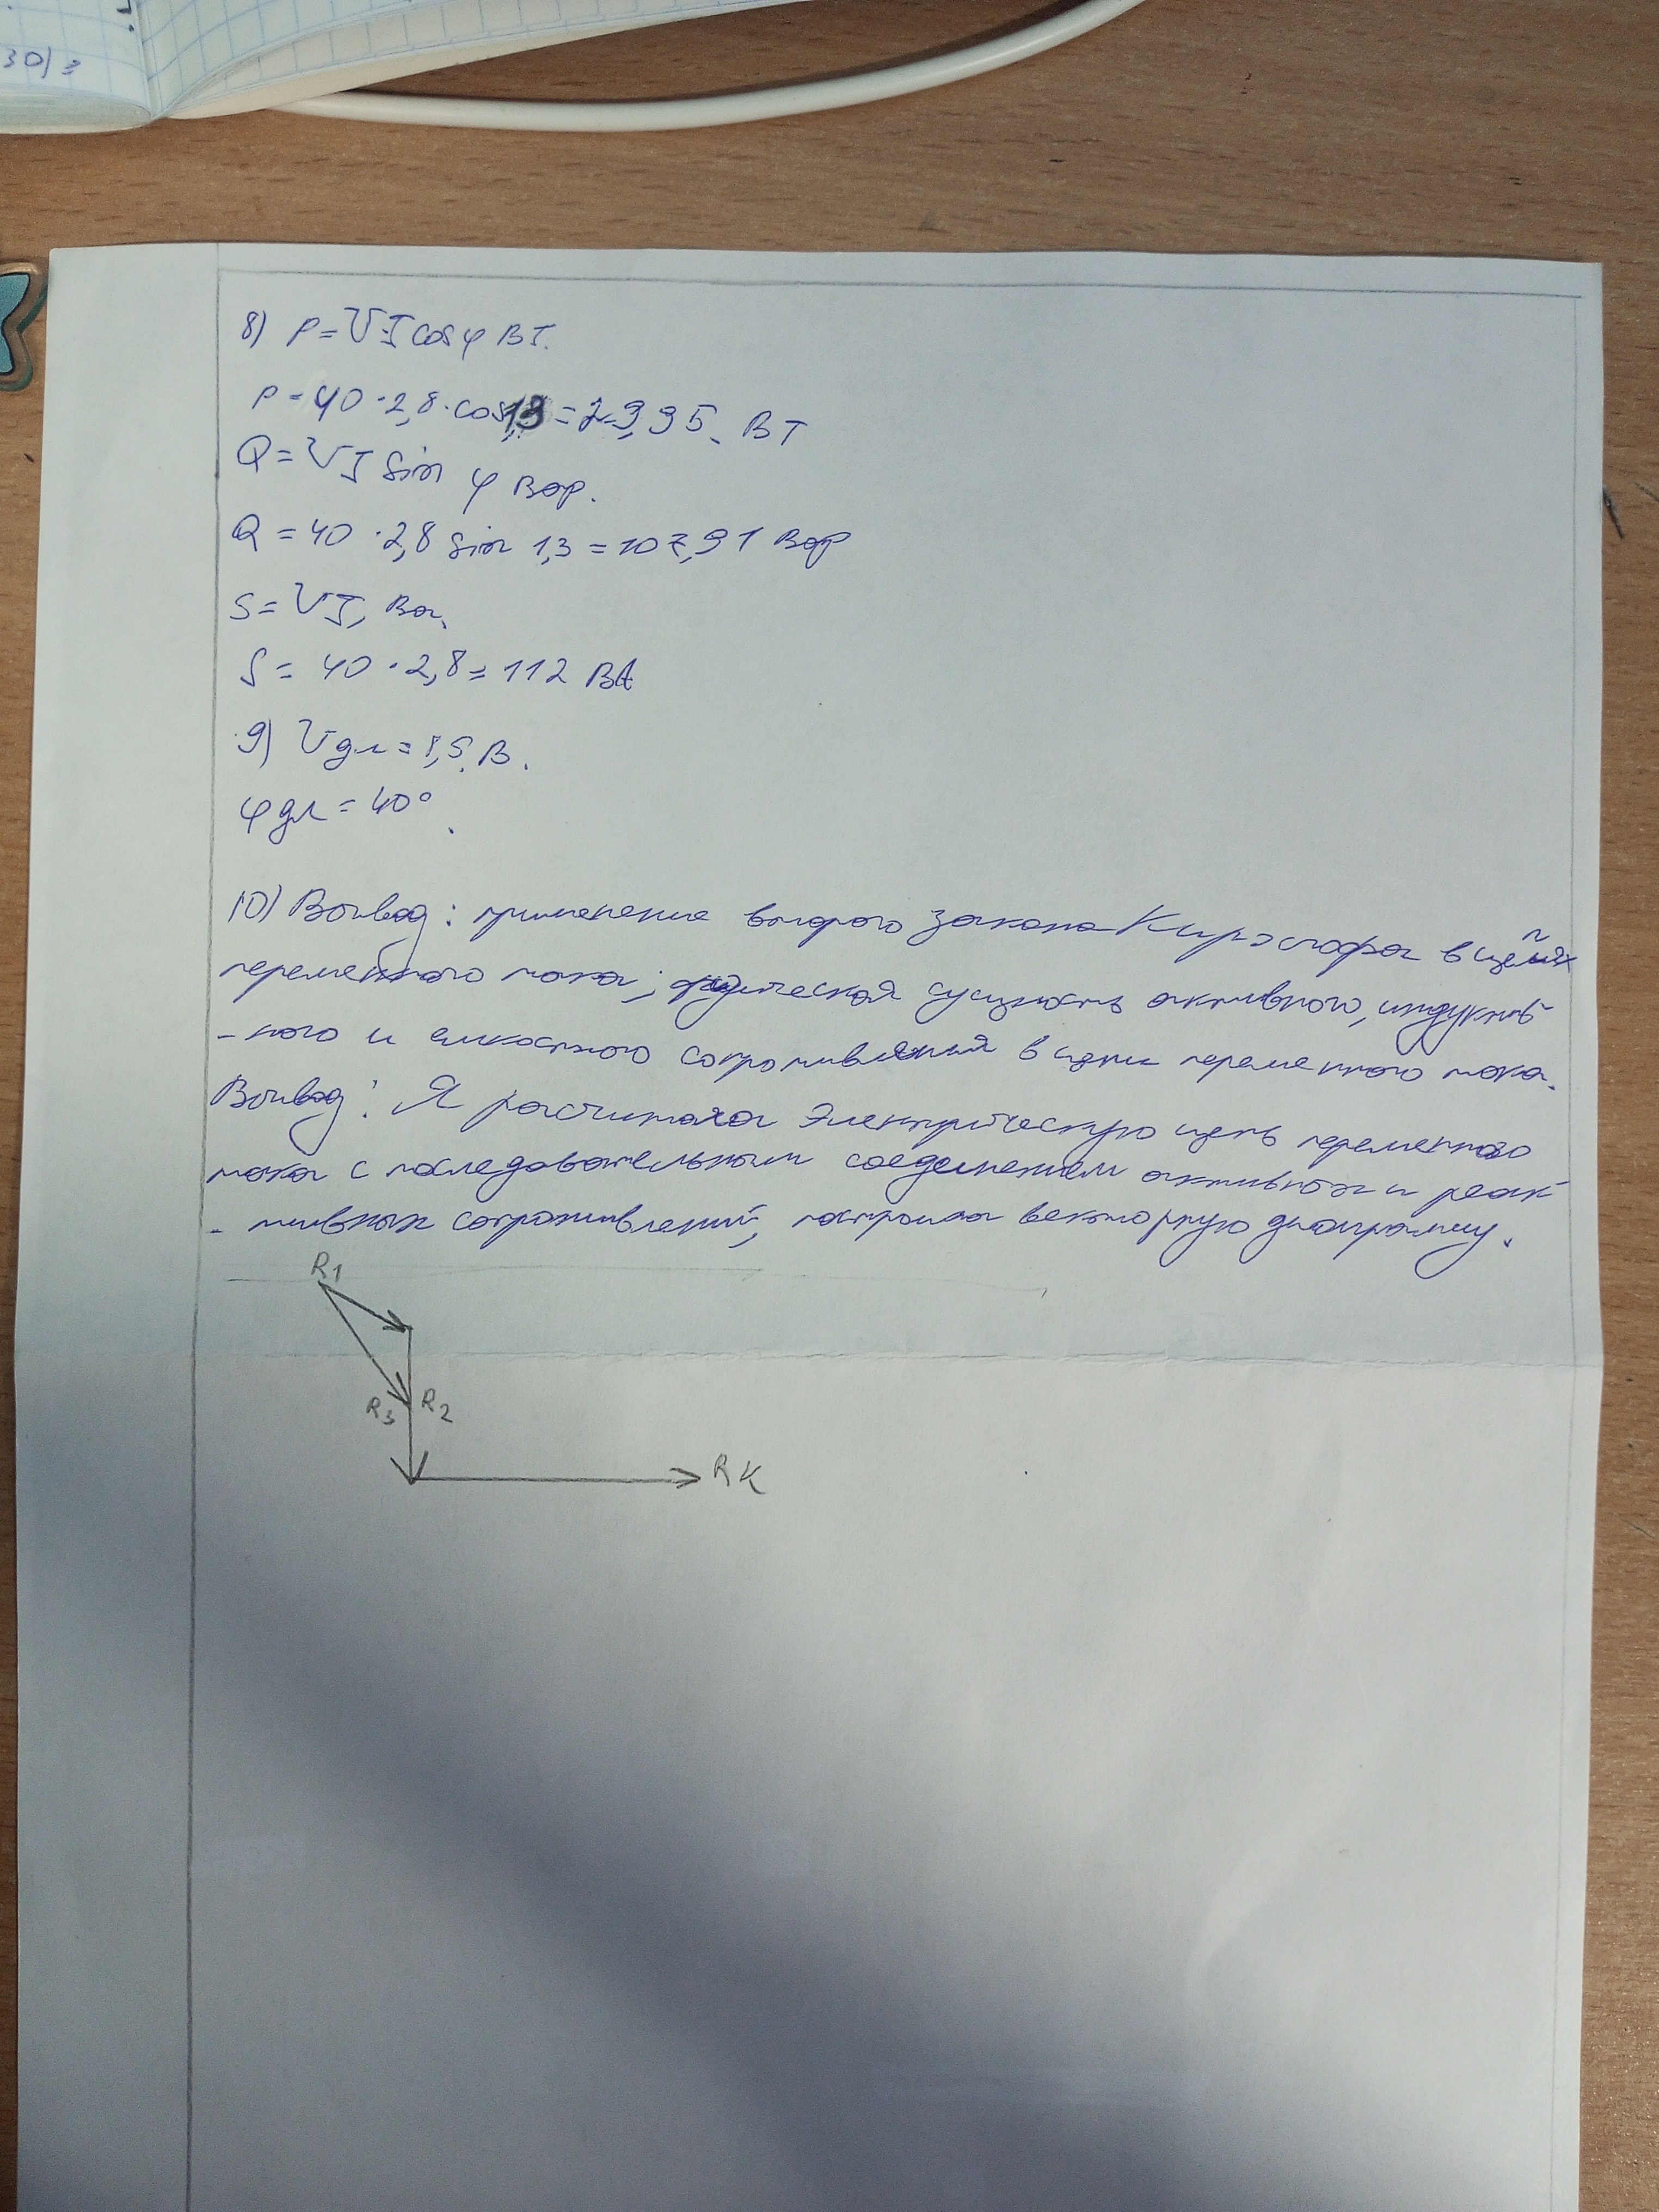 30) =
8) P=UIcosφ Вт.
P=40·2,8·cos1,3=29,95. Вт
Q=UI sin φ Вар.
Q=40·2,8 sin 1,3=107,91 Вар
S=UI, Ва.
S=40·2,8=112 ВА
9) Uдл=1,5.В.
φдл=40°.
10) Вывод: применение второго закона Кирхгофа в цепях
переменного тока; физическая сущность активного, индуктив
-ного и емкостного сопротивления в цепи переменного тока.
Вывод: Я расчитала электрическую цепь переменного
тока с последовательным соединением активных и реак
-тивных сопротивлений, построила векторную диаграмму.
R1
R3 R2
RK